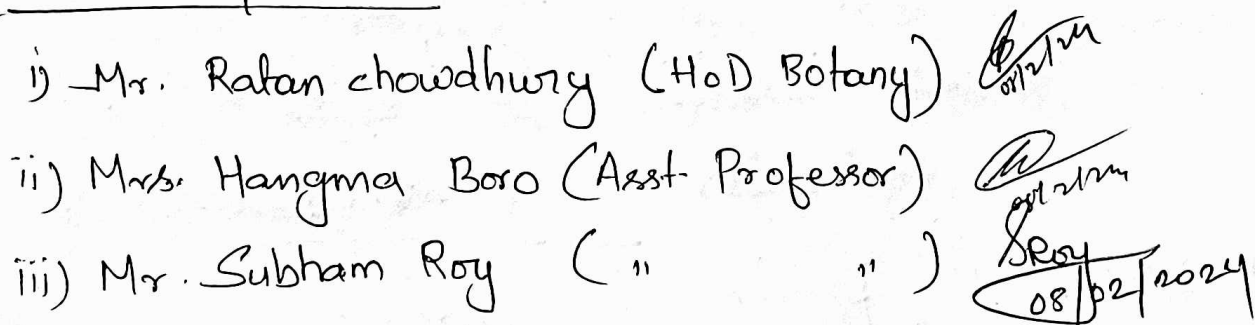 i) Mr. Ratan chowdhury (HoD Botany)
ii) Mrs. Hangma Boro (Asst. Professor)
iii) Mr. Subham Roy ( " " ) SRoy
08/02/2024